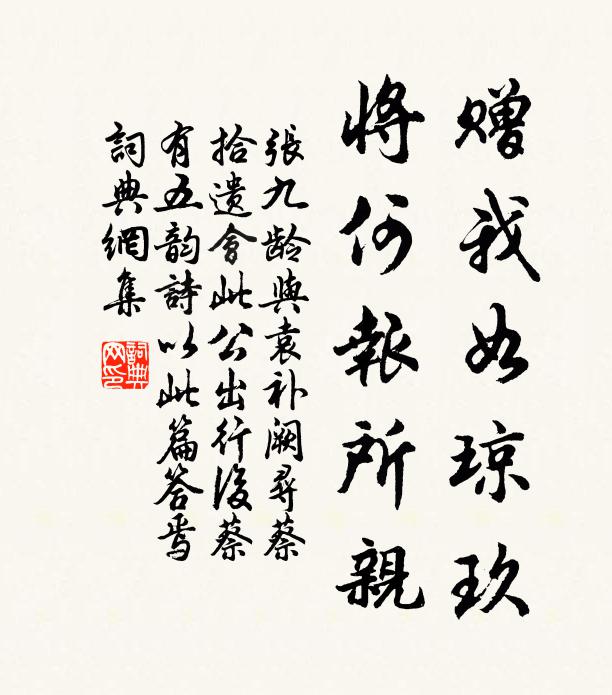 赠我如琼玖
將何報所親
張九龄與袁补阙尋蔡
拾遺會此公出行後蔡
有五韵詩以此篇答焉
詞典網集
詞典网印